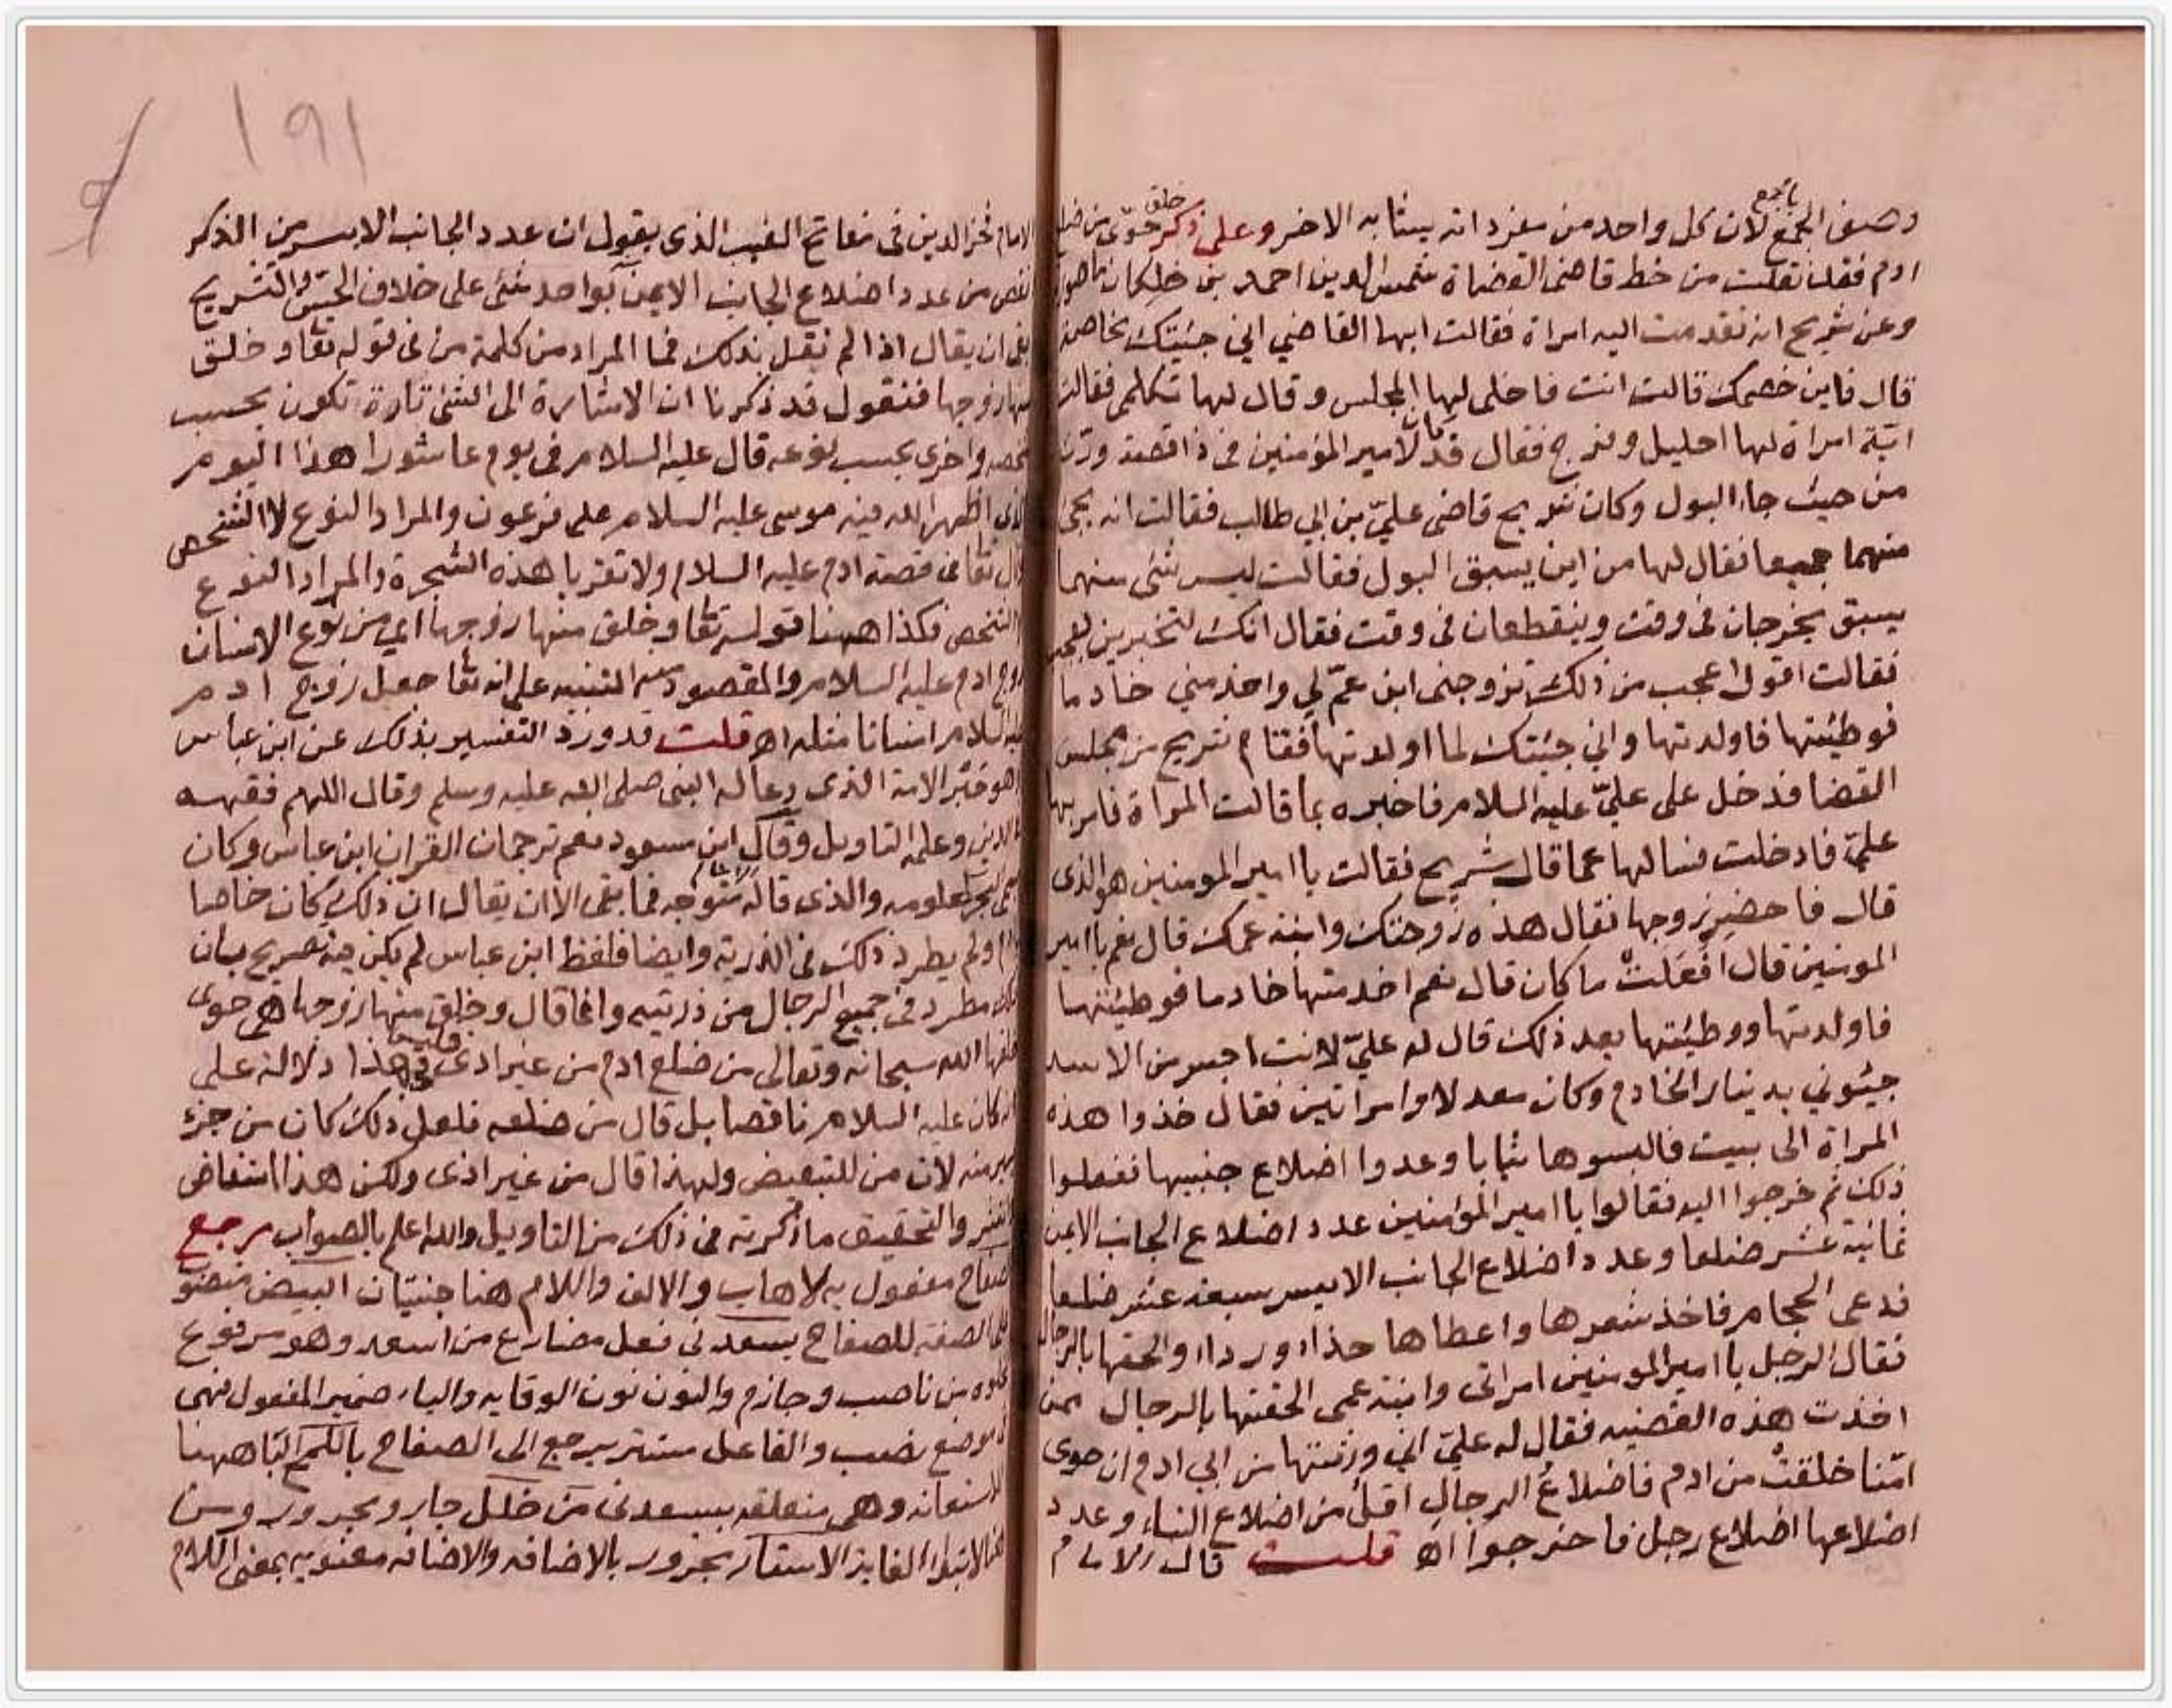 بالجمع
وصف الجمع لان كل واحد من مفرداته يشابه الاخر وعلى ذكر خلق حوى من ضلع
ادم فقد نقلت من خط قاضى القضاة شمس الدين احمد بن خلكان ما هو
وعن شريح انه تقدمت اليه امراة فقالت ايها القاضي اني جئيتك مخاصمة
قال فاين خصمك قالت انت فاخلى لها المجلس وقال لها تكلمى فقالت
انى امراة لها احليل وفرج فقال قد كان لامير المؤمنين فى ذا قصة ورث
من حيث جاء البول وكان شريح قاضى عليّ بن ابي طالب فقالت انه يجى
منهما جميعا فقال لها من اين يسبق البول فقالت ليس شئ منهما
يسبق يخرجان فى وقت وينقطعان فى وقت فقال انك لتخبرين بعجب
فقالت اقول اعجب من ذلك تزوجنى ابن عمّ لي واخدمني خادما
فوطيئتها فاولدتها واني جئيتك لما اولدتها فقام شريح من مجلس
القضا فدخل على عليّ عليه السلام فاخبره بما قالت المراة فامر بها
عليّ فادخلت فسالها عما قال شريح فقالت يا امير المومنين هو الذى
قال فاحضر زوجها فقال هذه زوجتك وابنة عمك قال نعم يا امير
المومنين قال افعلتْ ما كان قال نعم اخدمتها خادما فوطيئتها
فاولدتها ووطيئتها بعد ذلك قال له عليّ لانت اجسر من الاسد
جيئوني بدينار الخادم وكان معدلا وامراتين فقال خذوا هذه
المراة الى بيت فالبسوها ثيابا وعدوا اضلاع جنبيها ففعلوا
ذلك ثم خرجوا اليه فقالوا يا امير المؤمنين عدد اضلاع الجانب الايمن
ثمانية عشر ضلعا وعدد اضلاع الجانب الايسر سبعة عشر ضلعا
فدعى الحجام فاخذ شعرها واعطاها حذاء ورداء والحقها بالرجال
فقال الرجل يا امير المومنين امراتى وابنة عمى الحقتها بالرجال ممن
اخذت هذه القضيه فقال له عليّ اني ورثتها من ابي ادم ان حوى
امّنا خلقتْ من ادم فاضلاعُ الرجالِ اقل من اضلاع النساء وعدد
اضلاعها اضلاع رجل فاخرجوا اه قلت قال الامام
١٩١
الامام فخر الدين فى مفاتح الغيب الذى يقول ان عدد الجانب الايسر من الذكر
انقص من عدد اضلاع الجانب الايمن بواحد شئ على خلاف الحس والتشريح
بقى ان يقال اذا لم نقل بذلك فما المراد من كلمة من فى قوله تعا وخلق
منها زوجها فنقول قد ذكرنا ان الاشارة الى الشئ تارة تكون بحسب
شخصه واخرى بحسب نوعه قال عليه السلام فى يوم عاشورا هذا اليوم
الذى اظهر الله فيه موسى عليه السلام على فرعون والمراد النوع لا الشخص
قال تعا فى قصة ادم عليه السلام ولا تقربا هذه الشجرة والمراد النوع
الشخص فكذا ههنا قوله تعا وخلق منها زوجها اي من نوع الانسان
زوج ادم عليه السلام والمقصود منه التنبيه على انه تعا جعل زوج ادم
عليه السلام انسانا مثله اه قلت قد ورد التفسير بذلك عن ابن عباس
وهو حبر الامة الذى دعا له النبى صلى الله عليه وسلم وقال اللهم فقهه
فى الدين وعلمه التاويل وقال ابن مسعود نعم ترجمان القران ابن عباس وكان
يسمى البحر لعلومه والذى قاله الامام متوجه فما بقى الا ان يقال ان ذلك كان خاصا
ولم يطرد ذلك فى الذرية وايضا فلفظ ابن عباس لم يكن فيه صريح بان
ذلك مطرد فى جميع الرجال من ذريته وانما قال وخلق منها زوجها هى حوى
خلقها الله سبحانه وتعالى من ضلع ادم من غير اذى فليس فى هذا دلالة على
انه كان عليه السلام ناقصا بل قال من ضلعه فلعل ذلك كان من جزء
يسير منه لان من للتبعيض ولهذا قال من غير اذى ولكن هذا استفاض
والتحقيق ما ذكرته فى ذلك من التاويل والله اعلم بالصواب رجع
الصفاح مفعول به لاهاب والالف واللام هنا جنسيان البيض منصوب
على الصفة للصفاح يسعدنى فعل مضارع من اسعد وهو مرفوع
لخلوه من ناصب وجازم والنون نون الوقايه والياء ضمير المفعول فهى
فى موضع نصب والفاعل مستتر يرجع الى الصفاح باللمح البا ههنا
للاستعانه وهى متعلقه بيسعدنى من خلل جار ومجرور ومن
هنا لابتداء الغاية الاستار مجرور بالاضافه والاضافه معنويه بمعنى اللام